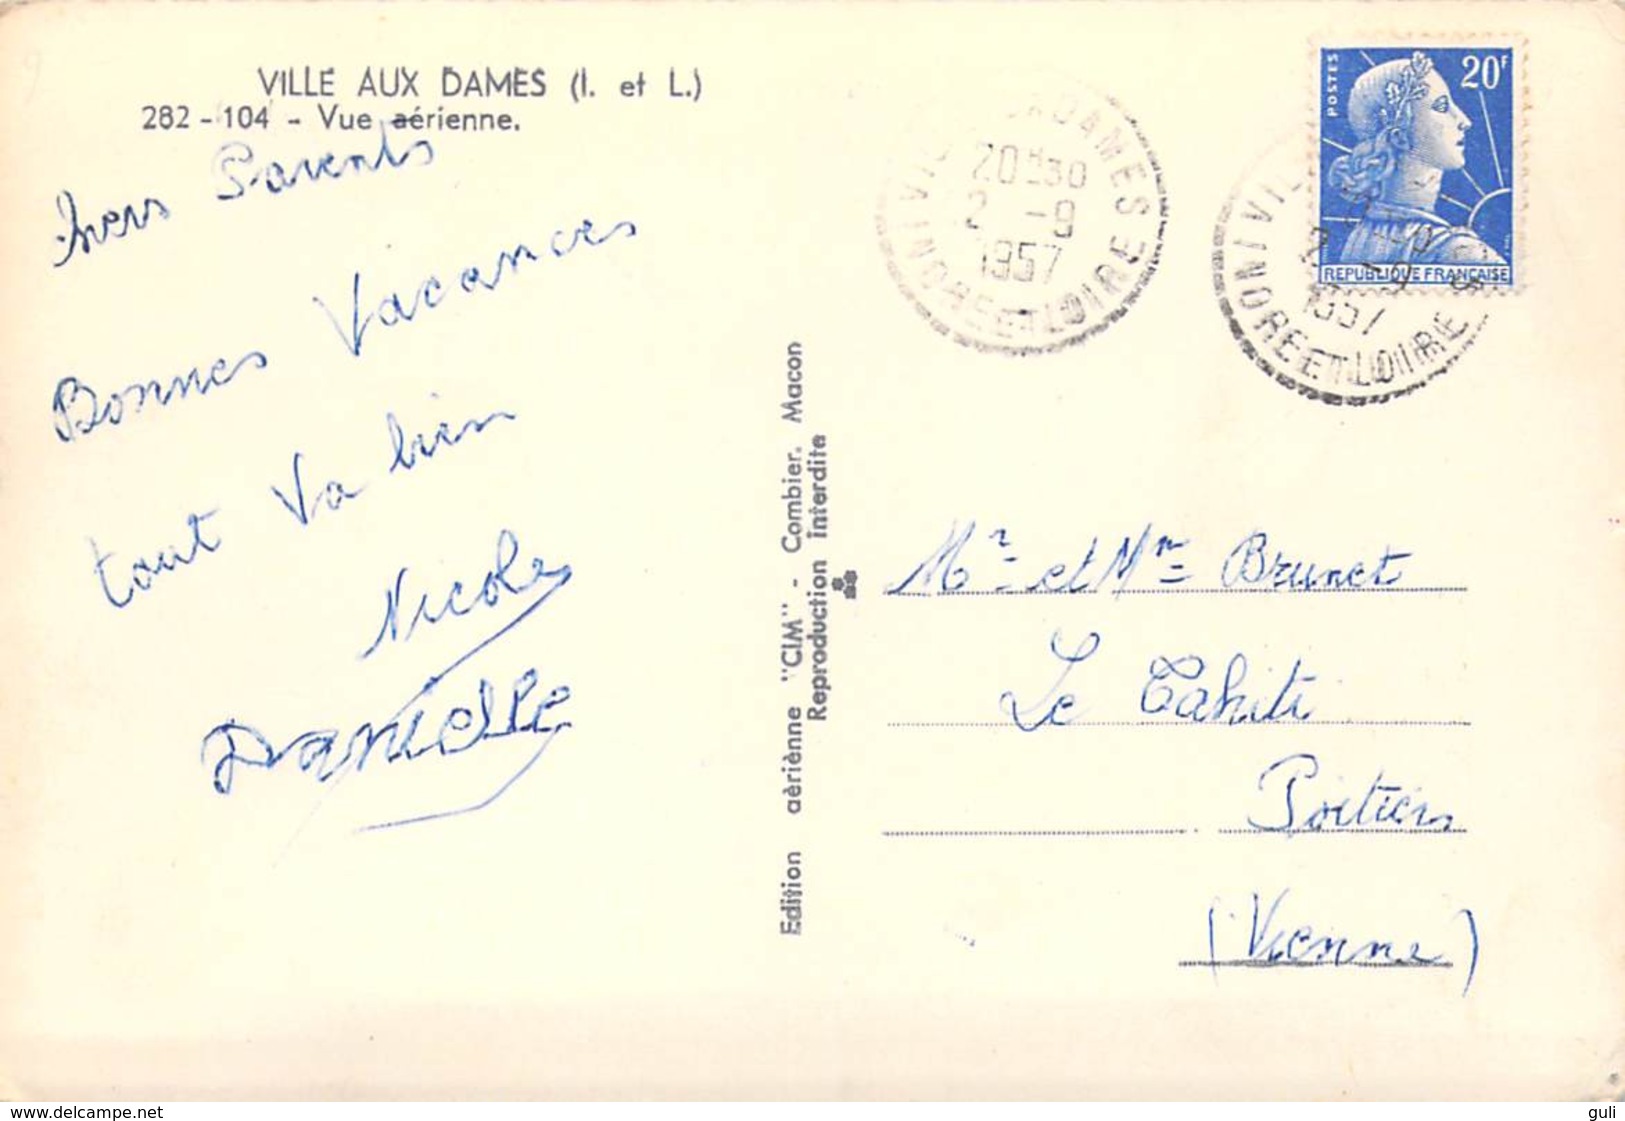 VILLE AUX DAMES (I. et L.)
282 - 104 - Vue aérienne.
Chers Parents
Bonnes Vacances
tout va bien
Nicole
Danielle
Edition aèriènne "CIM" - Combier. Macon
Reproduction interdite
20H30
2 -9
1957
INDRE ET LOIRE
POSTES
20F
REPUBLIQUE FRANÇAISE
2 -9
1957
INDRE ET LOIRE
Mr et Mme Brunet
Le Tahiti
Poitiers
(Vienne)
www.delcampe.net
guli